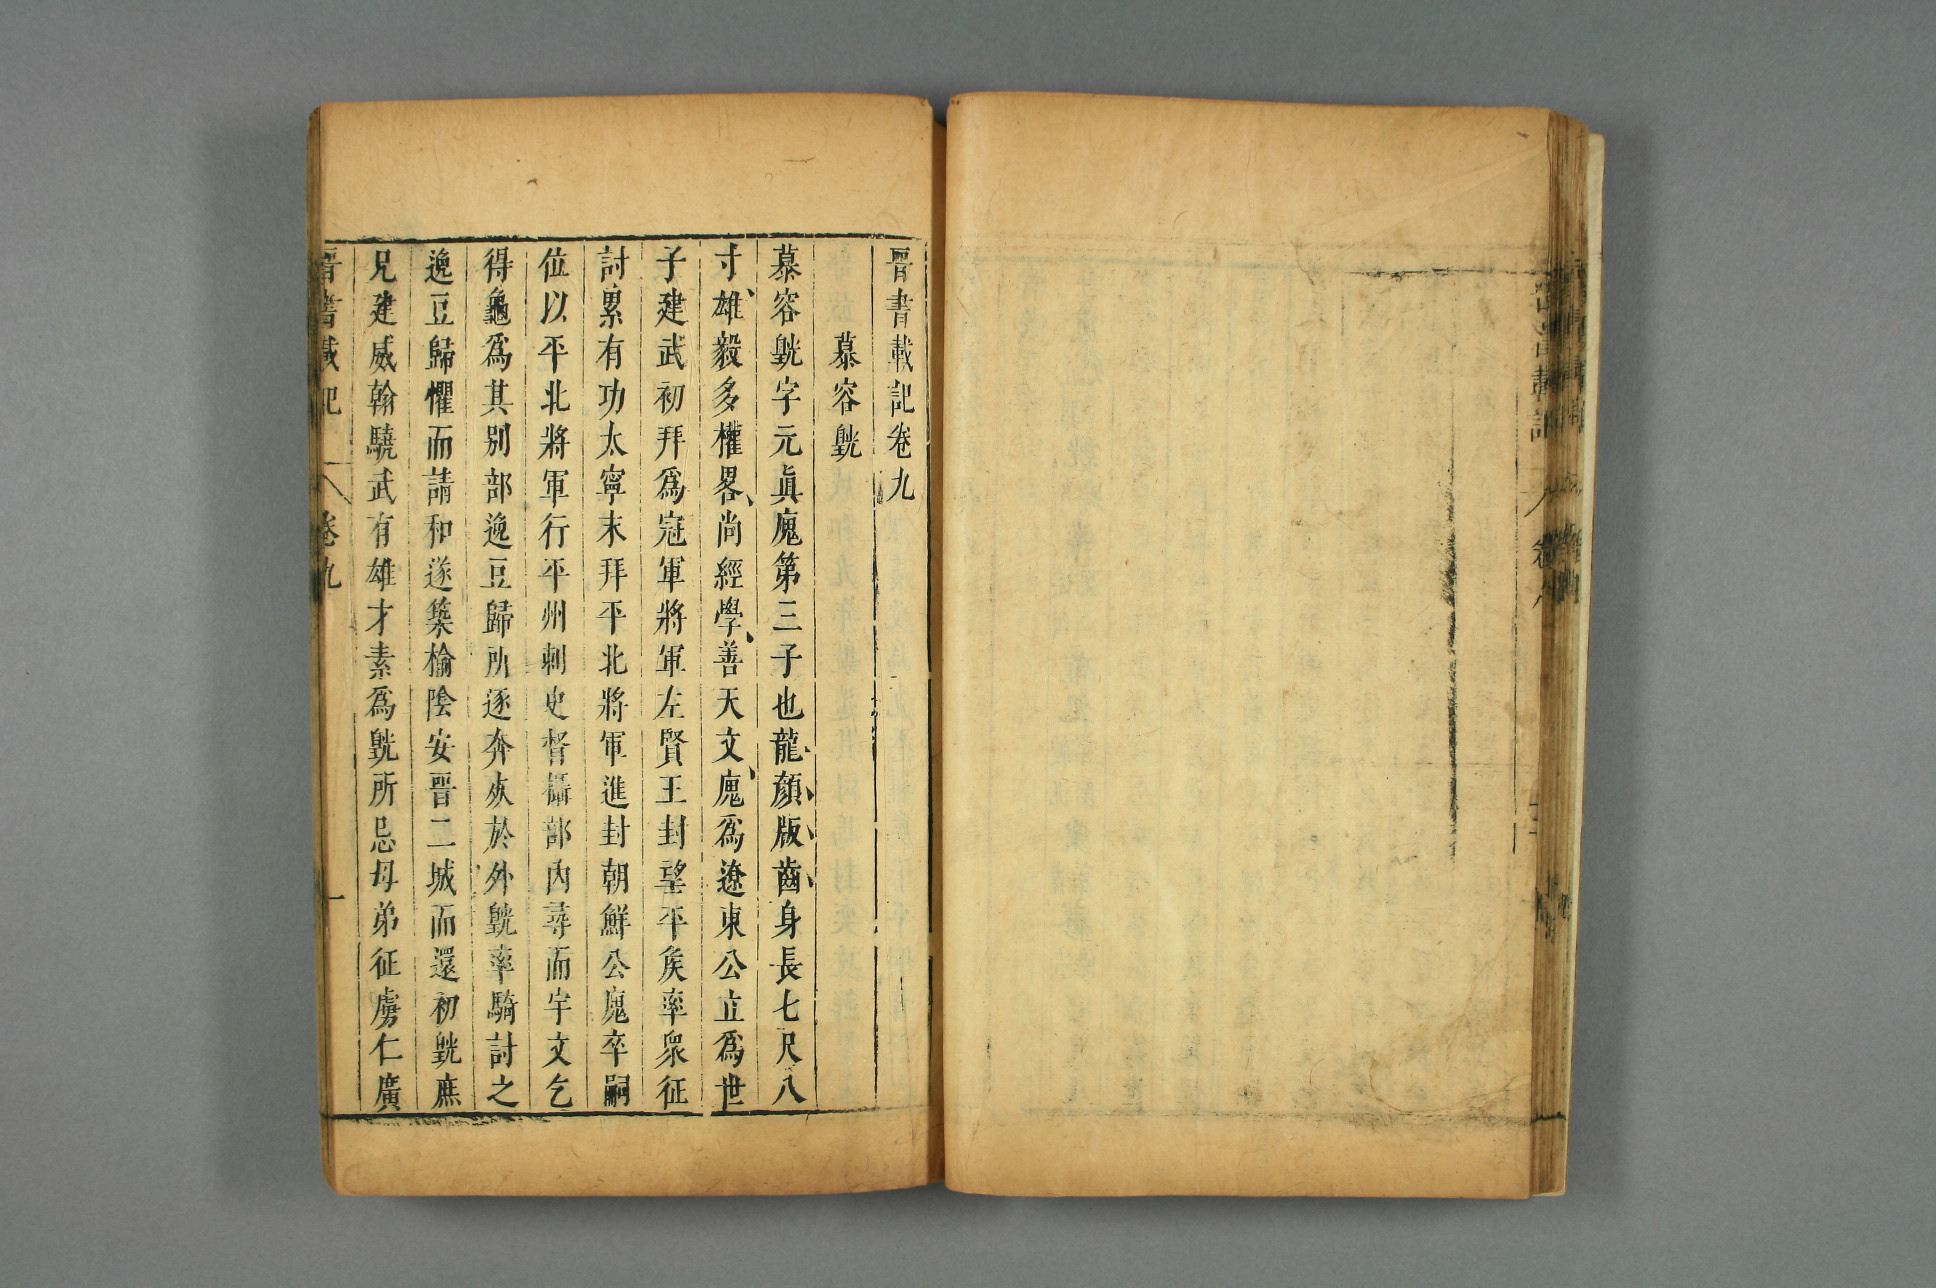 晉書載記卷九
慕容皝
慕容皝字元眞廆第三子也龍顏版齒身長七尺八
寸雄毅多權畧尚經學善天文廆爲遼東公立爲世
子建武初拜爲冠軍將軍左賢王封望平矦率眾征
討累有功太寧末拜平北將軍進封朝鮮公廆卒嗣
位以平北將軍行平州刺史督攝部內尋而宇文乞
得龜爲其別部逸豆歸所逐奔死於外皝率騎討之
逸豆歸懼而請和遂築榆陰安晉二城而還初皝庶
兄建威翰驍武有雄才素爲皝所忌母弟征虜仁廣
晉書載記 卷九 一